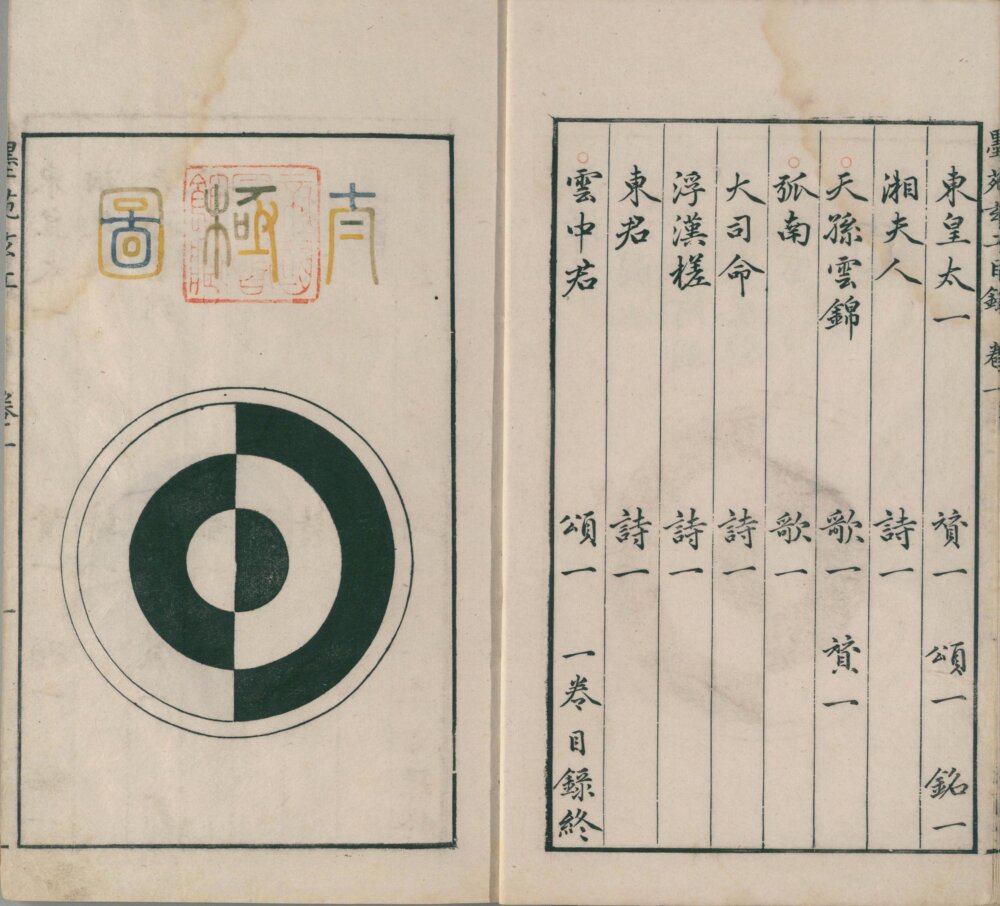 東皇太一 贊一 頌一 銘一
湘夫人 詩一
天孫雲錦 歌一 贊一
弧南 歌一
大司命 詩一
浮漢槎 詩一
東君 詩一
雲中君 頌一 一卷目錄終
太極圖
卷一
一